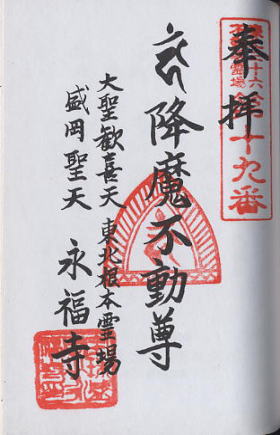 奉拝
十九番
降魔不動尊
大聖歓喜天 東北根本霊場
盛岡聖天 永福寺